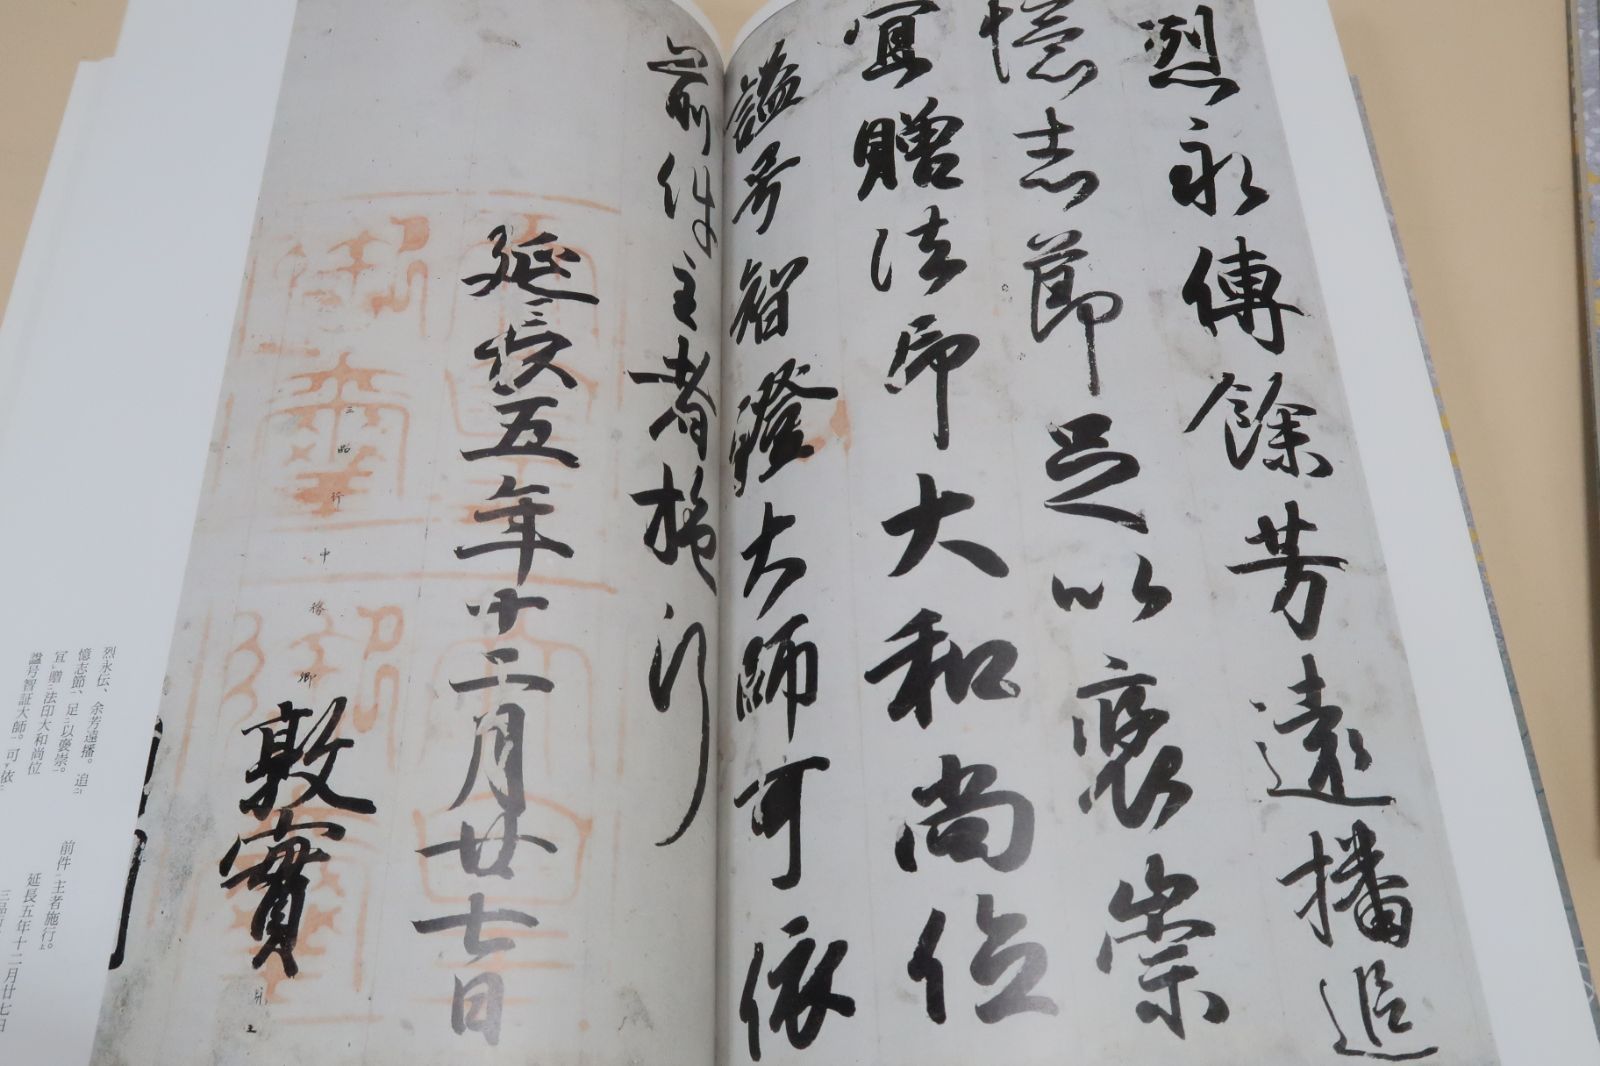 烈永傳餘芳遠播追
憶志節足以褒崇
冝贈法印大和尚位
諡号智證大師可依
前件主者施行
延長五年十二月廿七日
三品行中務卿敦實親王
烈永伝、余芳遠播。追
憶志節、足以褒崇。
冝贈法印大和尚位
諡号智証大師。可依
前件主者施行。
延長五年十二月廿七日